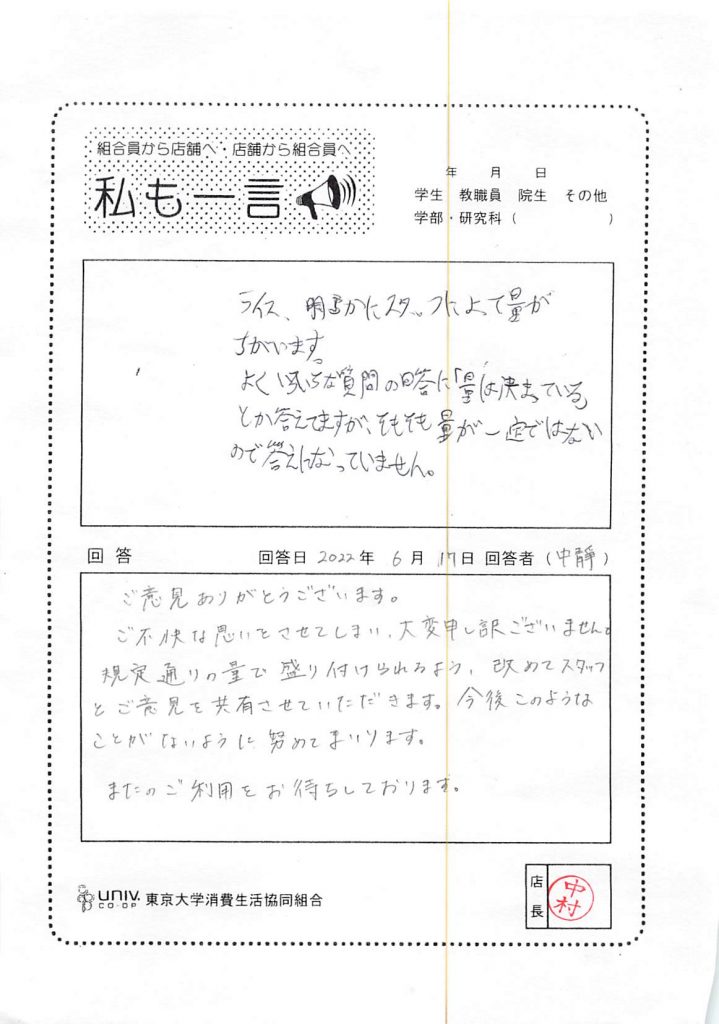 組合員から店舗へ・店舗から組合員へ
私も一言
年 月 日
学生 教職員 院生 その他
学部・研究科( )
ライス、明らかにスタッフによって量が
ちがいます。
よく似たような質問の回答に「量は決まっている」
とか答えてますが、そもそも量が一定ではない
ので答えになっていません。
回答 回答日 2022年 6月 17日 回答者(中静)
ご意見ありがとうございます。
ご不快な思いをさせてしまい、大変申し訳ございません。
規定通りの量で盛り付けられるよう、改めてスタッフ
とご意見を共有させていただきます。今後このような
ことがないように努めてまいります。
またのご利用をお待ちしております。
univ. CO-OP 東京大学消費生活協同組合
店長 中村